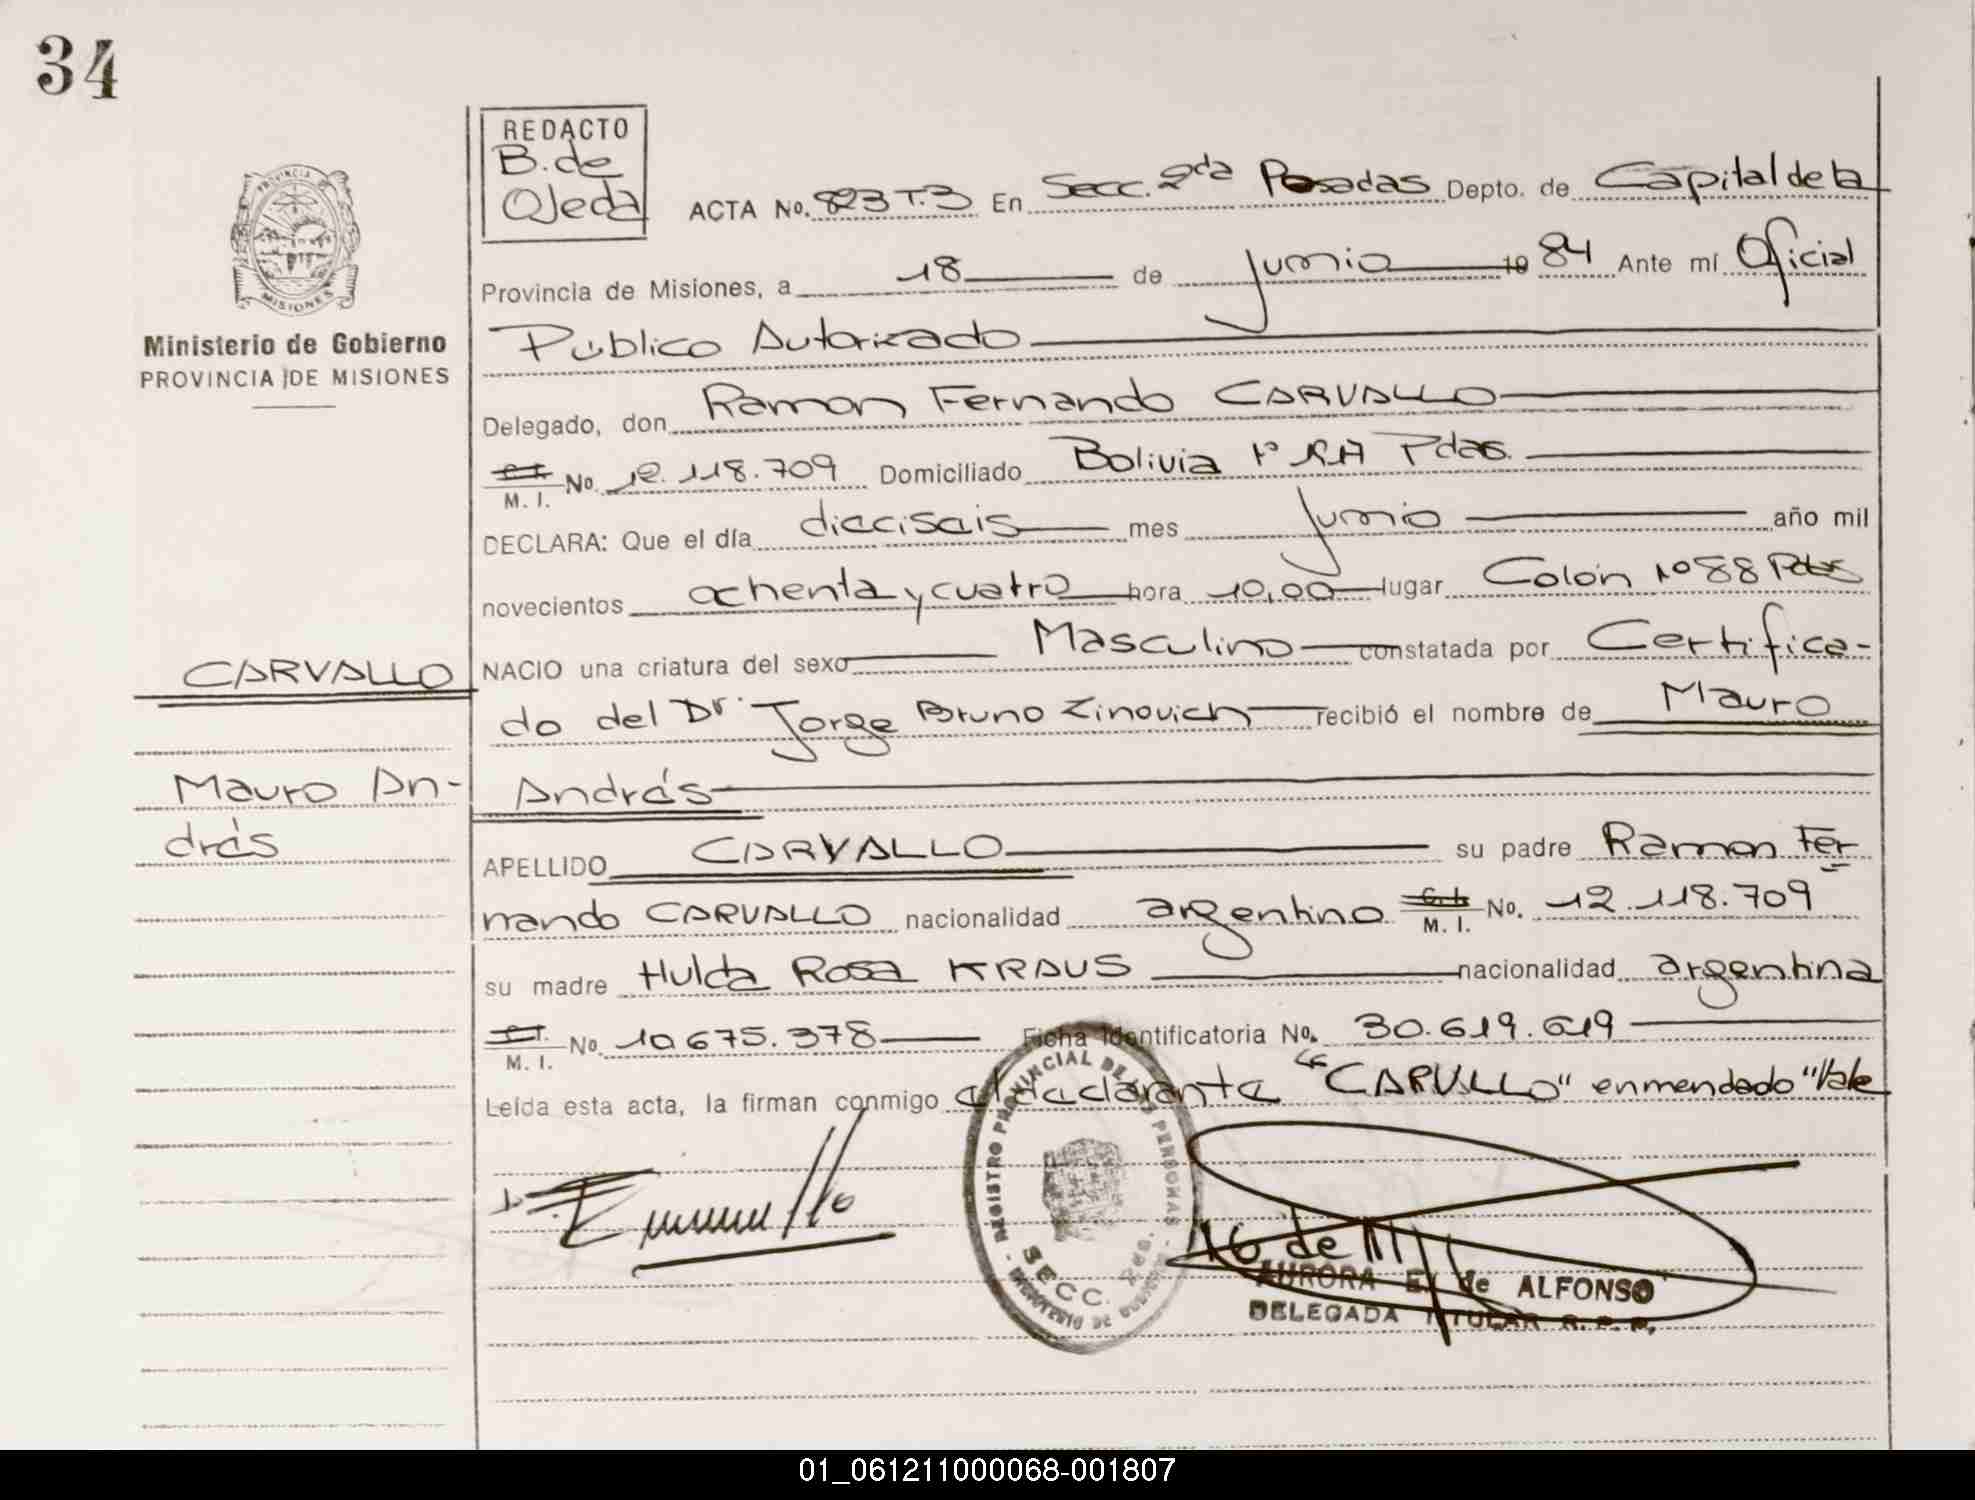 34
REDACTO
B. de
Ojeda
PROVINCIA DE
MISIONES
Ministerio de Gobierno
PROVINCIA DE MISIONES
ACTA No. 823 T.3 En Secc. 2da Posadas Depto. de Capital de la
Provincia de Misiones, a 18 de junio 1984 Ante mí Oficial
Público Autorizado
Delegado, don Ramon Fernando CARVALLO
M. I. No. 12.118.709 Domiciliado Bolivia Pdas.
DECLARA: Que el día dieciseis mes junio año mil
novecientos ochenta y cuatro hora 10,00 lugar Colón Nº 88 Pdas
NACIO una criatura del sexo Masculino constatada por Certifica-
do del Dr. Jorge Bruno Zinovich recibió el nombre de Mauro
Andrés
CARVALLO
Mauro An-
drés
APELLIDO CARVALLO su padre Ramon Fer
nando CARVALLO nacionalidad argentino C.I. M. I. No. 12.118.709
su madre Hulda Rosa KRAUS nacionalidad argentina
C.I. M. I. No. 10.675.378 Ficha Identificatoria No. 30.619.619
Leída esta acta, la firman conmigo el declarante "CARVALLO" enmendado "Vale
REGISTRO PROVINCIAL DE LAS PERSONAS
SECC. 2da.
AURORA E. de ALFONSO
DELEGADA TITULAR R. P. P.
01_061211000068-001807